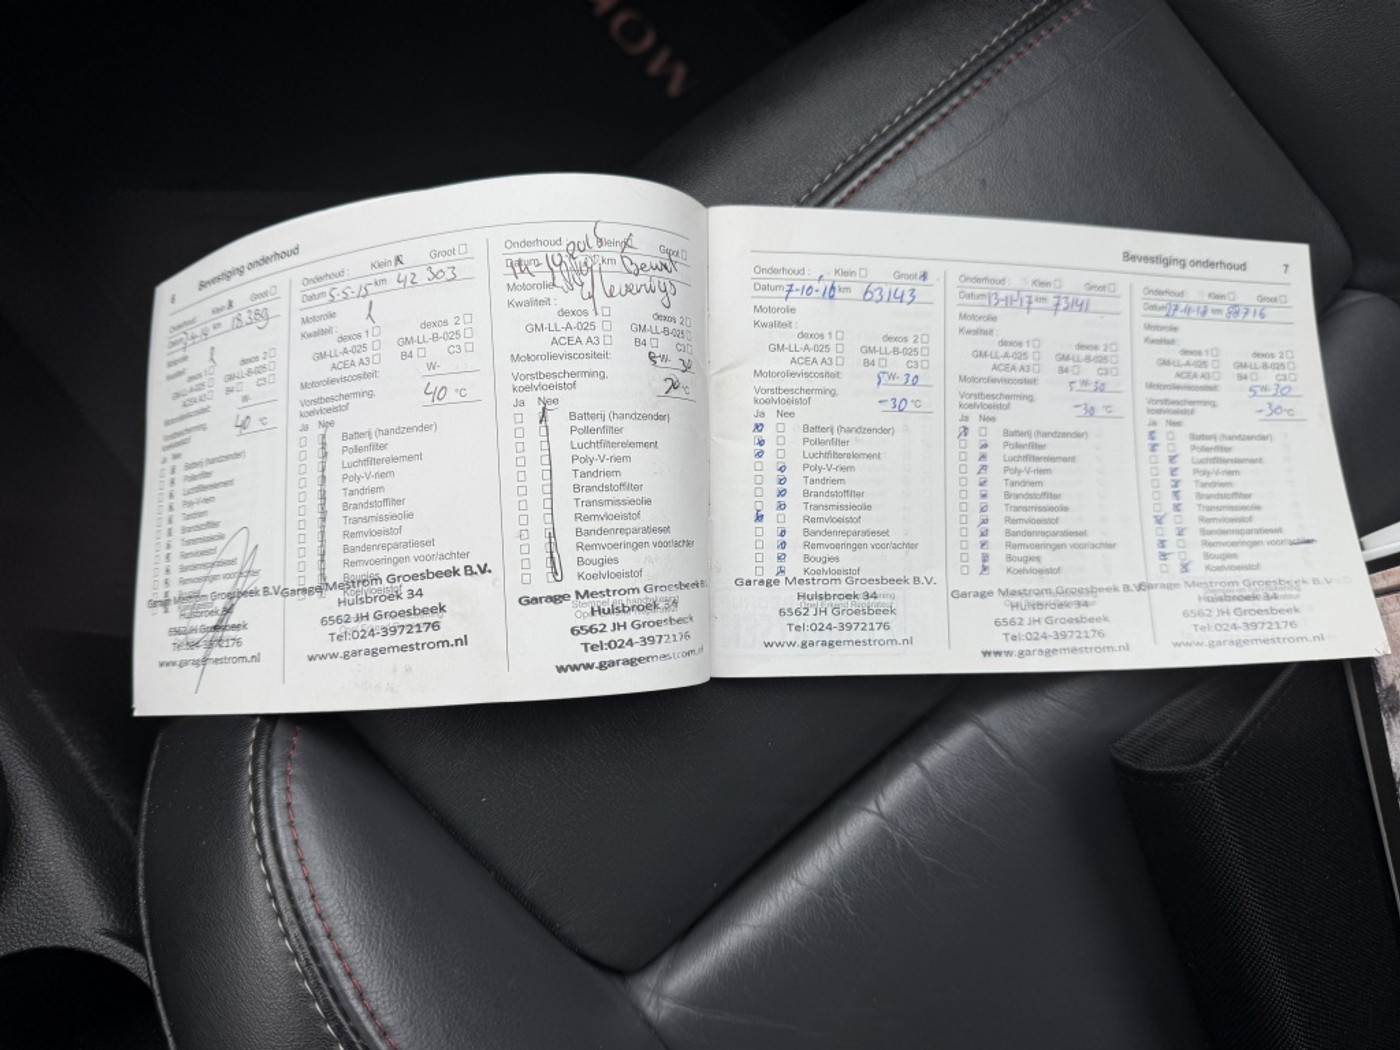 MOK
6 Bevestiging onderhoud
Onderhoud: Klein Groot
Datum km 18.389
Motorolie
Kwaliteit:
dexos 1 dexos 2
GM-LL-B-025
B4 C3
W-
Vorstbescherming,
koelvloeistof 40 °C
Ja Nee
Batterij (handzender)
Pollenfilter
Luchtfilterelement
Poly-V-riem
Tandriem
Brandstoffilter
Transmissieolie
Remvloeistof
Bandenreparatieset
Remvoeringen voor/achter
Garage Mestrom Groesbeek B.V.
Hulsbroek 34
6562 JH Groesbeek
Tel:024-3972176
www.garagemestrom.nl
Onderhoud: Klein Groot
Datum 5-5-15 km 42 303
Motorolie
Kwaliteit:
dexos 1 dexos 2
GM-LL-A-025 GM-LL-B-025
ACEA A3 B4 C3
Motorolieviscositeit: W-
Vorstbescherming,
koelvloeistof 40 °C
Ja Nee
Batterij (handzender)
Pollenfilter
Luchtfilterelement
Poly-V-riem
Tandriem
Brandstoffilter
Transmissieolie
Remvloeistof
Bandenreparatieset
Remvoeringen voor/achter
Bougies
Garage Mestrom Groesbeek B.V.
Hulsbroek 34
6562 JH Groesbeek
Tel:024-3972176
www.garagemestrom.nl
Onderhoud Klein Groot
Datum km
Motorolie
Kwaliteit:
dexos 1 dexos 2
GM-LL-A-025 GM-LL-B-025
ACEA A3 B4 C3
Motorolieviscositeit: 5 W- 30
Vorstbescherming,
koelvloeistof °C
Ja Nee
Batterij (handzender)
Pollenfilter
Luchtfilterelement
Poly-V-riem
Tandriem
Brandstoffilter
Transmissieolie
Remvloeistof
Bandenreparatieset
Remvoeringen voor/achter
Bougies
Koelvloeistof
Garage Mestrom Groesbeek B.V.
Hulsbroek 34
6562 JH Groesbeek
Tel:024-3972176
www.garagemestrom.nl
Bevestiging onderhoud 7
Onderhoud: Klein Groot
Datum 7-10-16 km 63143
Motorolie
Kwaliteit:
dexos 1 dexos 2
GM-LL-A-025 GM-LL-B-025
ACEA A3 B4 C3
Motorolieviscositeit: 5 W- 30
Vorstbescherming,
koelvloeistof -30 °C
Ja Nee
Batterij (handzender)
Pollenfilter
Luchtfilterelement
Poly-V-riem
Tandriem
Brandstoffilter
Transmissieolie
Remvloeistof
Bandenreparatieset
Remvoeringen voor/achter
Bougies
Koelvloeistof
Garage Mestrom Groesbeek B.V.
Hulsbroek 34
6562 JH Groesbeek
Tel:024-3972176
www.garagemestrom.nl
Onderhoud: Klein Groot
Datum 13-11-17 km 73141
Motorolie
Kwaliteit:
dexos 1 dexos 2
GM-LL-A-025 GM-LL-B-025
ACEA A3 B4 C3
Motorolieviscositeit: 5 W- 30
Vorstbescherming,
koelvloeistof -30 °C
Ja Nee
Batterij (handzender)
Pollenfilter
Luchtfilterelement
Poly-V-riem
Tandriem
Brandstoffilter
Transmissieolie
Remvloeistof
Bandenreparatieset
Remvoeringen voor/achter
Bougies
Koelvloeistof
Garage Mestrom Groesbeek B.V.
Hulsbroek 34
6562 JH Groesbeek
Tel:024-3972176
www.garagemestrom.nl
Onderhoud: Klein Groot
Datum km 88716
Motorolie
Kwaliteit:
dexos 1 dexos 2
GM-LL-A-025 GM-LL-B-025
ACEA A3 B4 C3
Motorolieviscositeit: 5 W- 30
Vorstbescherming,
koelvloeistof -30 °C
Ja Nee
Batterij (handzender)
Pollenfilter
Luchtfilterelement
Poly-V-riem
Tandriem
Brandstoffilter
Transmissieolie
Remvloeistof
Bandenreparatieset
Remvoeringen voor/achter
Bougies
Koelvloeistof
Garage Mestrom Groesbeek B.V.
Hulsbroek 34
6562 JH Groesbeek
Tel:024-3972176
www.garagemestrom.nl